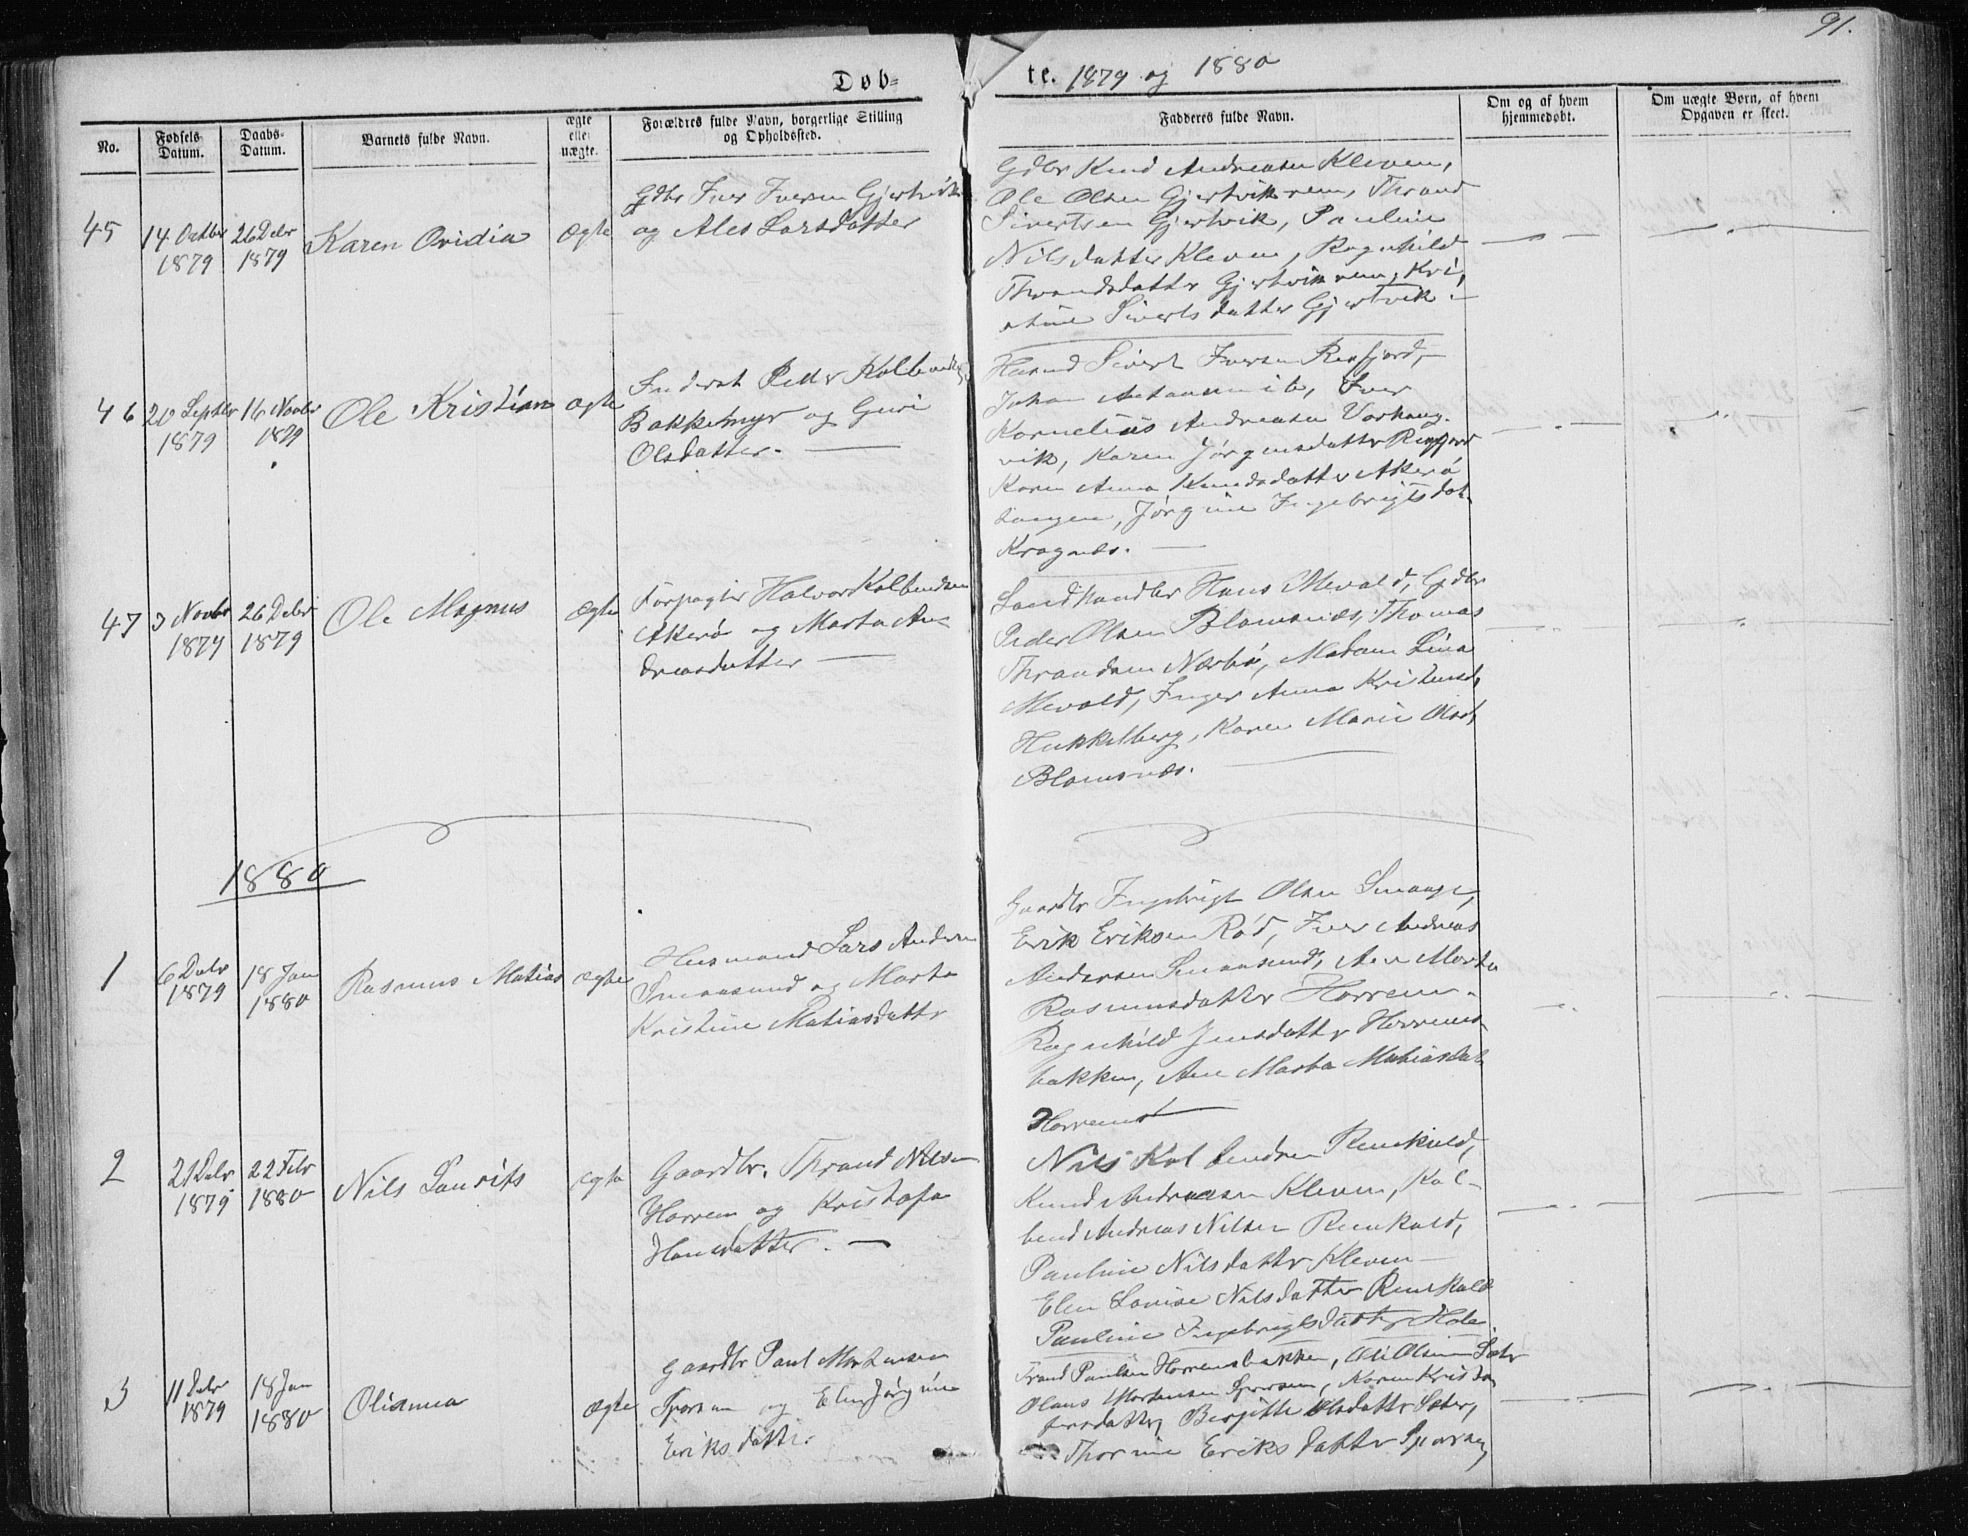 91.
Døb=
te. 1879 og 1880
No.
Fødsels Datum.
Daabs- Datum.
Barnets fulde Navn.
ægte eller uægte.
Forældres fulde Navn, borgerlige Stilling og Opholdssted.
Fadderes fulde Navn.
Om og af hvem hjemmedøbt.
Om uægte Børn, af hvem Opgaven er skeet.
45
14 Octbr 1879
26 Debr 1879
Karen Ovidia
Ægte
Gdbr Iver Iversen Gjertvik
og Ales Larsdatter
Gdbr Knud Andreasen Kleven,
Ole Olsen Gjertvikrem, Thrand
Sivertsen Gjertvik, Pauline
Nilsdatter Kleven, Ragnhild
Thrandsdatter Gjertvikrem, Kri,
stine Sivertsdatter Gjertvik.
46
20 Septbr 1879
16 Novbr 1879
Ole Kristian
Ægte
Inderst Peder Kolbendsen
Bakkemyr og Guri
Olsdatter.
Husmd Sivert Iversen Ræfjord,
Johan
Kornelius Andreasen Vorhaug-
vik, Karen Jørgensdatter
Karen Anna Knudsdatter Akerø
Jørgine Ingebrigtsdat.
Kragnæs.
47
3 Novbr 1879
26 Debr 1879
Ole Magnus
Ægte
Forpagter Halvor Kolbendsen
Akerø og Marta An-
dreasdatter
Landhandler Hans Mevold, Gdbr
Peder Olsen Blomsnæs, Thomas
Thrandsen Nærbø, Madam Lina
Mevold, Inger Anna Kristensd,
Hukkelberg, Karen Marie Olsd,
Blomsnæs.
1880
1
6 Debr 1879
18 Jan 1880
Rasmus Matias
ægte
Husmand Lars Andersen
Smaasund og Marta
Kristine Matiasdatter
Gaardbr Ingebrigt Olsen Smaage,
Erik Eriksen Rød, Iver Andreas
Andersen Smaasund, Ane Marta
Rasmusdatter Horrem-
Ragnhild Jensdatter Horrems-
bakken, Ane Marta Matiasdat
Horrem
2
21 Debr 1879
22 Febr 1880
Nils Laurits
ægte
Gaardbr. Thrand Nilsen
Horrem og Kristofa
Hansdatter.
Nils Kolbendsen Renskuld,
Knud Andreasen Kleven, Kol-
bend Andreas Nilsen Renskuld,
Pauline Nilsdatter Kleven
Elen Lovise Nilsdatter Renskald
Pauline Ingebrigtsdatter Hole
3
11 Debr 1879
18 Jan 1880
Olianna
ægte
Gaardbr Paul Mortensen
Sporsem og Elen Jørgine
Eriksdatter.
Trand Paulsen Horremsbakken, Ole Olsen Sæter
Olaus Mortensen Sporsem, Karen Kristo
fersdatter, Bergitte Olsdatter Sæter,
Thorine Eriksdatter Sporsem